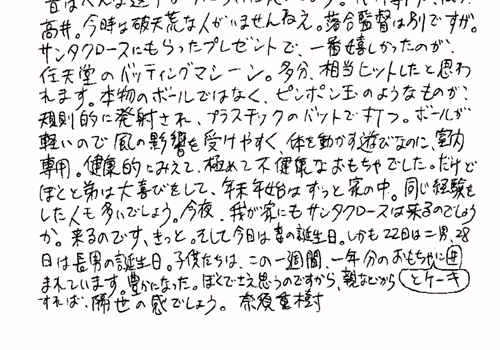 高井。今時は破天荒な人がいませんねえ。落合監督は別ですが。
サンタクロースにもらったプレゼントで、一番嬉しかったのが、
任天堂のバッティングマシーン。多分、相当ヒットしたと思わ
れます。本物のボールではなく、ピンポン玉のようなものが、
規則的に発射され、プラスチックのバットで打つ。ボールが
軽いので風の影響を受けやすく、体を動かす遊びなのに、室内
専用。健康的にみえて、極めて不健康なおもちゃでした。だけど
ぼくと弟は大喜びをして、年末年始はずっと家の中。同じ経験を
した人も多いでしょう。今夜、我が家にもサンタクロースは来るのでしょう
か。来るのです、きっと。そして今日は妻の誕生日。しかも22日は二男、28
日は長男の誕生日。子供たちは、この一週間、一年分のおもちゃに囲
まれています。豊かになった。ぼくでさえ思うのですから、親などから とケーキ
すれば、隔世の感でしょう。 奈須重樹